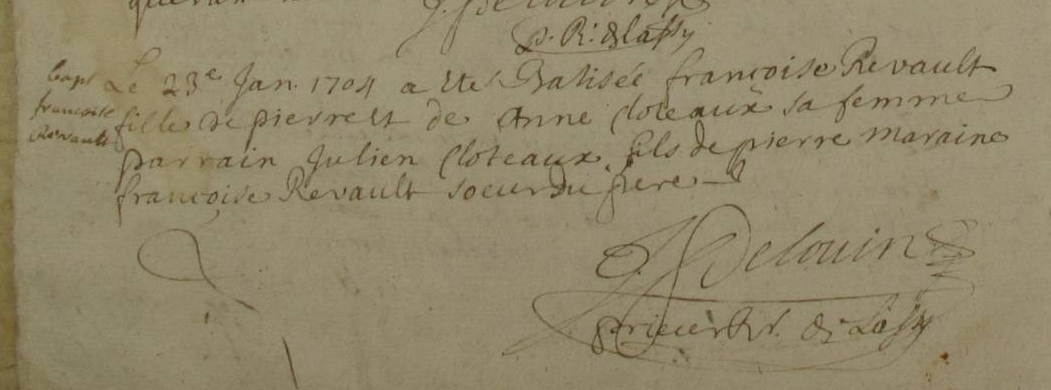 p. R. de Lassy
bapt
francoise
Revault
Le 23e Jan. 1704 a ete Batisée françoise Revault
fille de pierre et de Anne Cloteaux sa femme
parrain Julien Cloteaux fils de pierre maraine
françoise Revault soeur du pere
J Delouin
prieur R. de Lassy